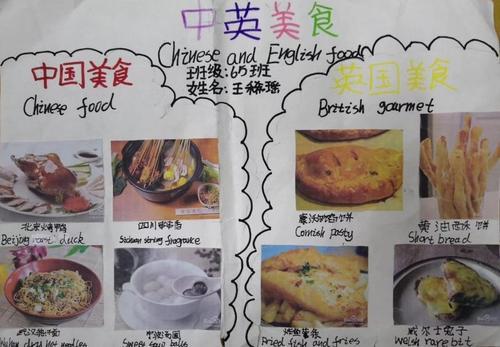 中英美食
Chinese and English food
班级:65班
姓名:王
中国美食
Chinese food
英国美食
British gourmet
北京烤鸭
Beijing roast duck
四川串串香
Sichuan string fragrance
康沃尔馅饼
Cornish pasty
黄油酥饼
Short bread
武汉热干面
Wuhan dry hot noodles
汤圆
Sweet soup balls
炸鱼薯条
Fried fish and fries
威尔士兔子
Welsh rarebit